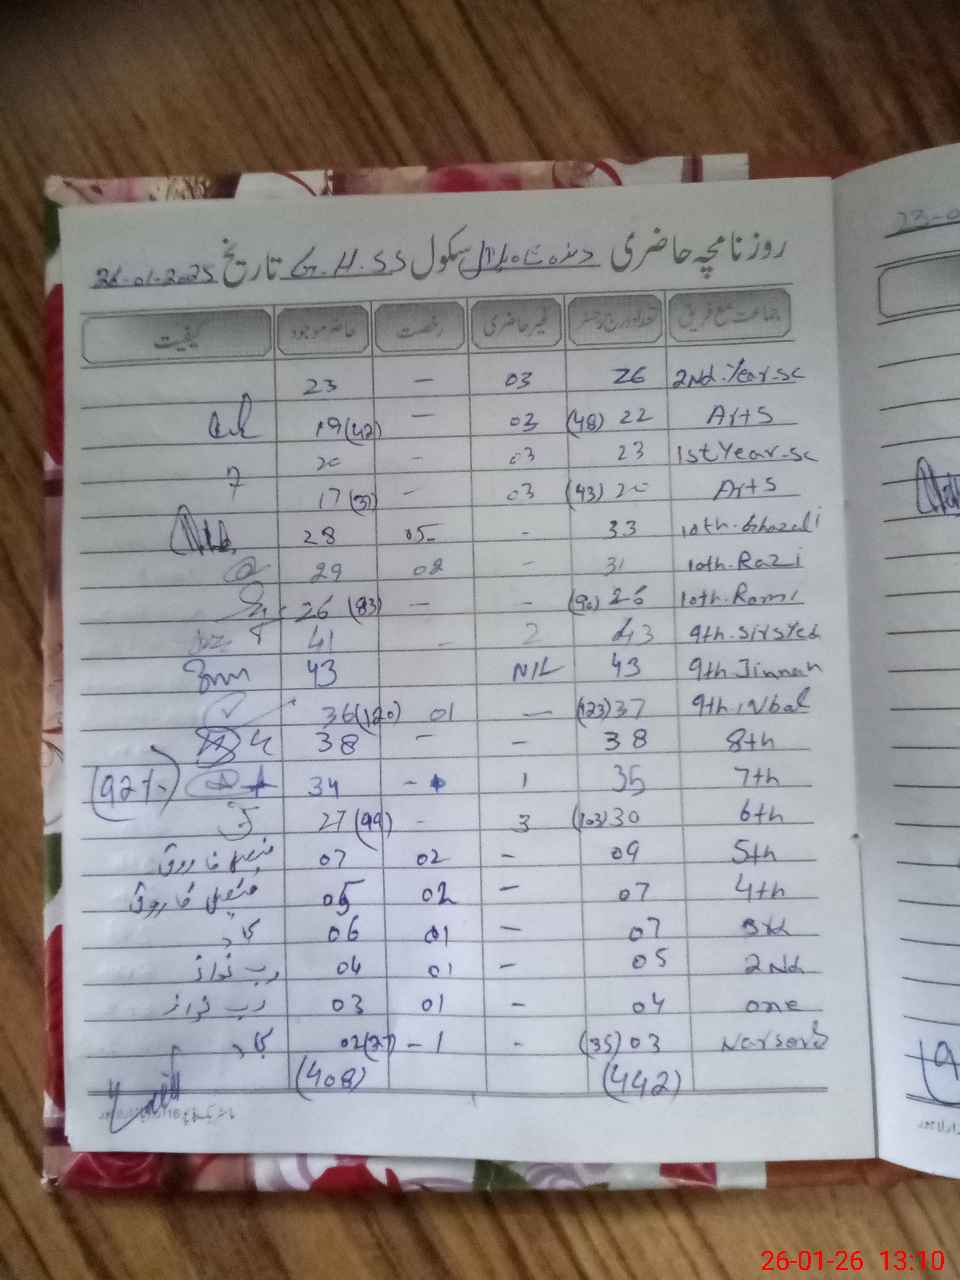 روزنامچہ حاضری سکول G.H.SS تاریخ 26-01-2025
جماعت مع فریق تعداد درج رجسٹر غیر حاضری رخصت حاضر موجود کیفیت
2Nd.Year.sc 26 03 — 23
Arts 22 (48) 03 — 19 (42)
1st Year.sc 23 03 - 20
Arts 20 (43) 03 - 17 (37)
10th.Ghazali 33 - 05 28
10th.Razi 31 - 02 29
10th.Romi 26 (90) - — 26 (83)
9th.Sirsyed 43 2 - 41
9th Jinnah 43 NIL 43
9th.iqbal 37 (123) — 01 36 (120)
8th 38 - - 38
7th 35 1 - 34 (92%)
6th 30 (103) 3 - 27 (99)
5th 09 - 02 07 فیصل فاروق
4th 07 — 02 05 فیصل فاروق
3rd 07 — 01 06
2Nd 05 - 01 04 رب نواز
one 04 - 01 03 رب نواز
Narsory 03 (35) - -1 02 (27)
(442) (408)
23-0
26-01-26 13:10